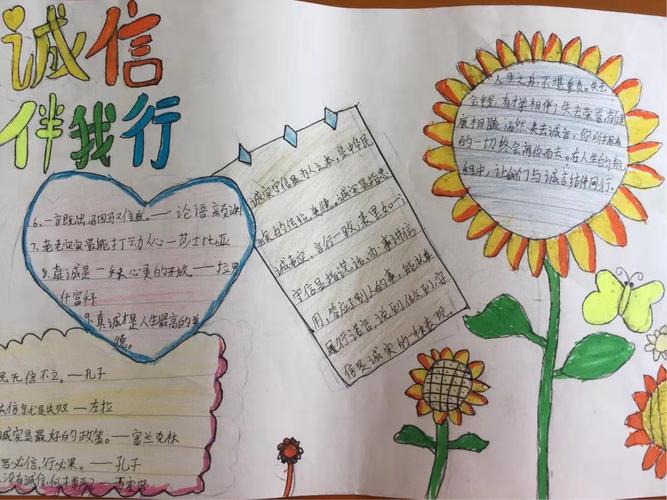 诚信
伴我行
6.一言既出驷马难追。——论语
7.老老实实最能打动人心—莎士比亚
8.真诚是一种心灵的开放。——拉罗
什富科
9.真诚才是人生最高的美
德。
民无信不立。——孔子
失信就是失败—左拉
诚实是最好的政策。——富兰克林
言必信,行必果。——孔子
没有诚信,何来
诚实守信是为人之本,是中华民
族的传统美德。诚实是指忠
诚老实,言行一致,表里如一。
守信是指说话、办事讲信
用,答应了别人的事,能认真
履行诺言,说到做到,守
信是诚实的一种表现。
人生之舟,不堪重负。失去
金钱,有才学相伴;失去荣誉,有健
康相随。活然,失去诚言,你所作用有
的一切终会离你而去。在人生的
组中,让我们与诚言结伴同行。